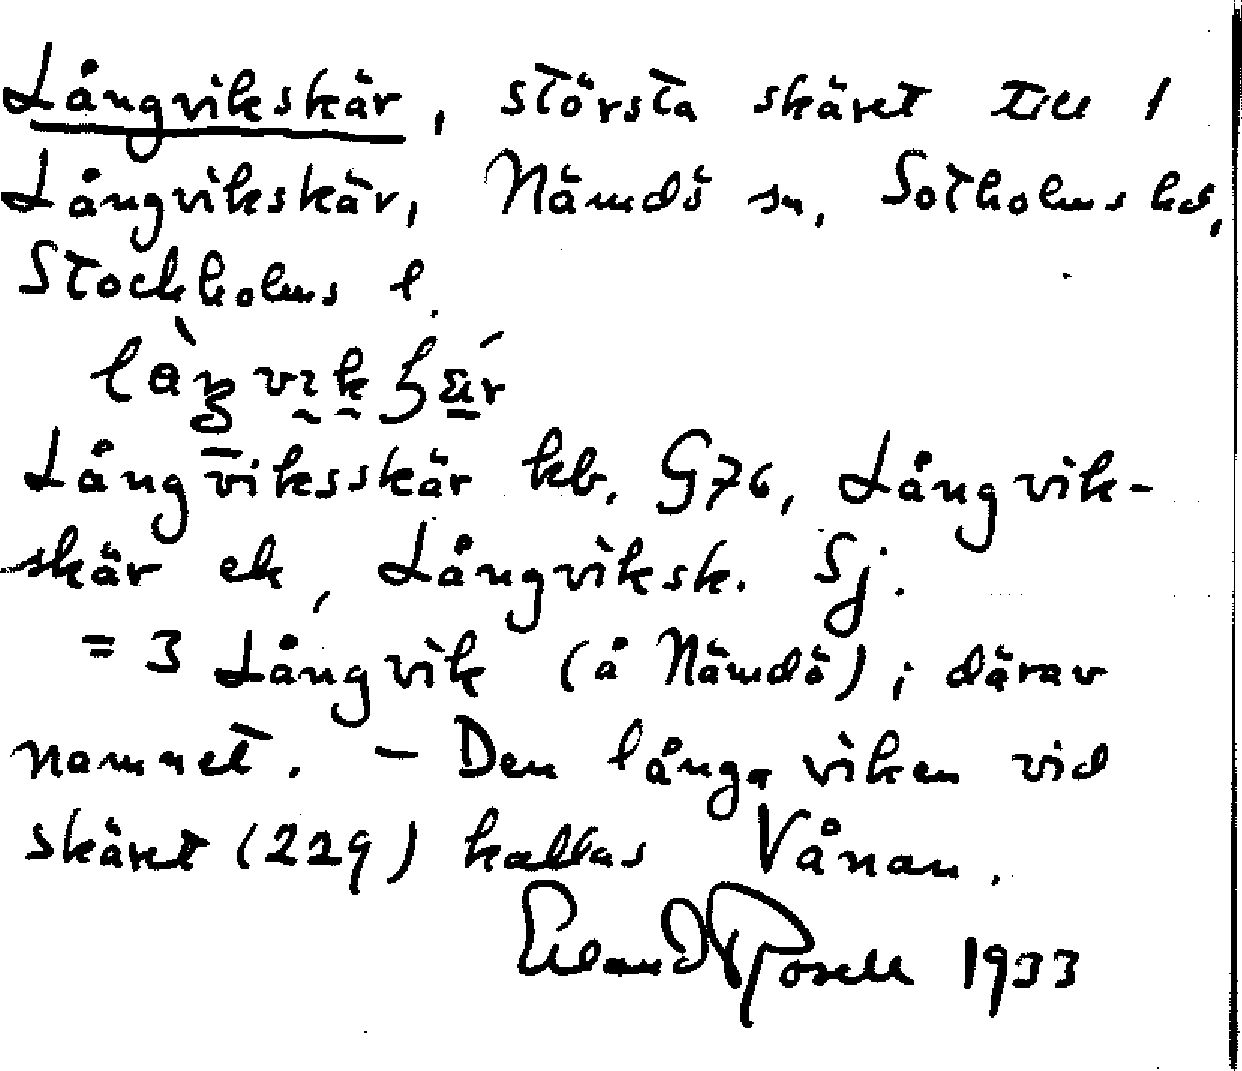 Långvikskär, största skäret till 1
Långvikskär, Nämdö sn, Sotholms hd,
Stockholms l.
Långviksskär kb, G76, Långvik-
skär ek, Långviksk. Sj.
= 3 Långvik (å Nämdö); därav
namnet. – Den långa viken vid
skäret (229) kallas Vånan.
Erland Rosell 1933